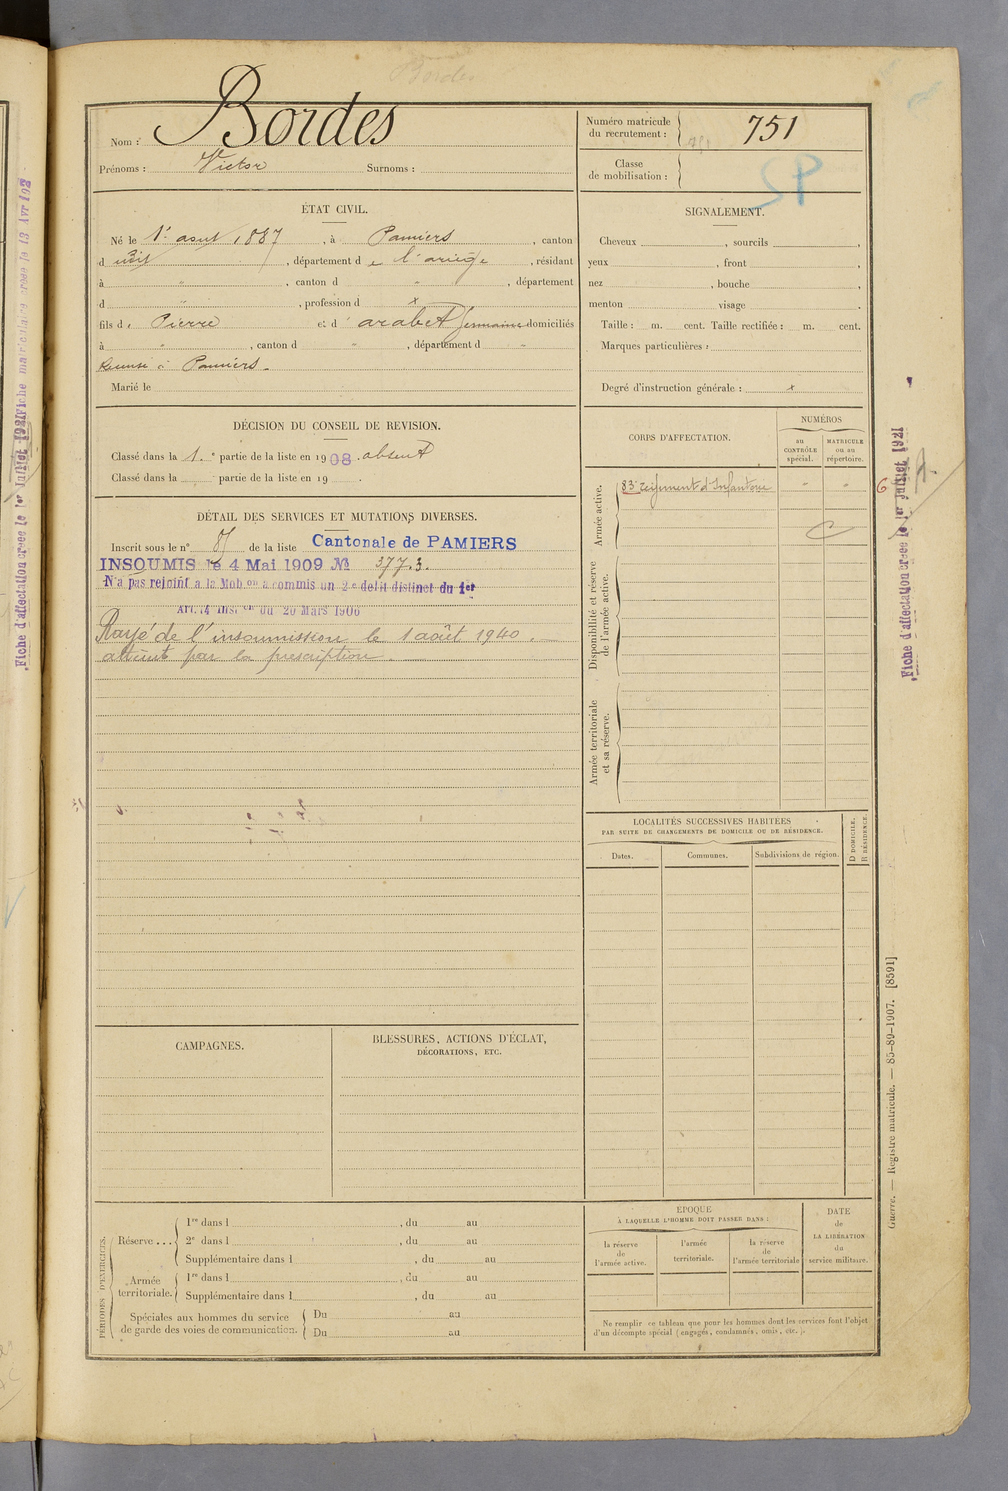 Bordes
Nom : Bordes
Prénoms : Victor Surnoms :
ÉTAT CIVIL.
Né le 1er aout 1887, à Pamiers, canton
dudit, département de l'ariège, résidant
à " , canton d " , département
d " , profession d x
fils de Pierre et d' arabet Germaine domiciliés
à " , canton d " , département d "
à Pamiers.
Marié le
DÉCISION DU CONSEIL DE REVISION.
Classé dans la 1re partie de la liste en 1908. absent
Classé dans la partie de la liste en 19 .
DÉTAIL DES SERVICES ET MUTATIONS DIVERSES.
Inscrit sous le n° de la liste Cantonale de PAMIERS
INSOUMIS le 4 Mai 1909 № 3773.
N'a pas rejoint a la Mobon a commis un 2e delit distinct du 1er
Art. 4 Inston du 20 Mars 1906
Rayé de l'insoumission le 1 août 1940.
atteint par la prescription.
CAMPAGNES.
BLESSURES, ACTIONS D'ÉCLAT,
DÉCORATIONS, ETC.
PÉRIODES D'EXERCICES.
Réserve ...
1re dans l , du au
2e dans l , du au
Supplémentaire dans l , du au
Armée
territoriale.
1re dans l , du au
Supplémentaire dans l , du au
Spéciales aux hommes du service
de garde des voies de communication.
Du au
Du au
Numéro matricule
du recrutement :
751
Classe
de mobilisation :
SIGNALEMENT.
Cheveux , sourcils ,
yeux , front ,
nez , bouche ,
menton visage
Taille : m. cent. Taille rectifiée : m. cent.
Marques particulières :
Degré d'instruction générale : x
CORPS D'AFFECTATION.
NUMÉROS
au
CONTRÔLE
spécial.
MATRICULE
ou au
répertoire.
Armée active.
83e regiment d'Infanterie " "
Disponibilité et réserve
de l'armée active.
Armée territoriale
et sa réserve.
LOCALITÉS SUCCESSIVES HABITÉES
PAR SUITE DE CHANGEMENTS DE DOMICILE OU DE RÉSIDENCE.
D DOMICILE.
R RÉSIDENCE.
Dates.
Communes.
Subdivisions de région.
EPOQUE
À LAQUELLE L'HOMME DOIT PASSER DANS :
la réserve
de
l'armée active.
l'armée
territoriale.
la réserve
de
l'armée territoriale
DATE
de
LA LIBÉRATION
du
service militaire.
Ne remplir ce tableau que pour les hommes dont les services font l'objet
d'un décompte spécial (engagés, condamnés, omis, etc.).
Fiche d'affectation creee le 1er Juillet 1921
Guerre. — Registre matricule. — 85-89-1907. [8591]
Fiche d'affectation creee le 1er Juillet 1921
Fiche matriculaire creee le 13 Avr 192